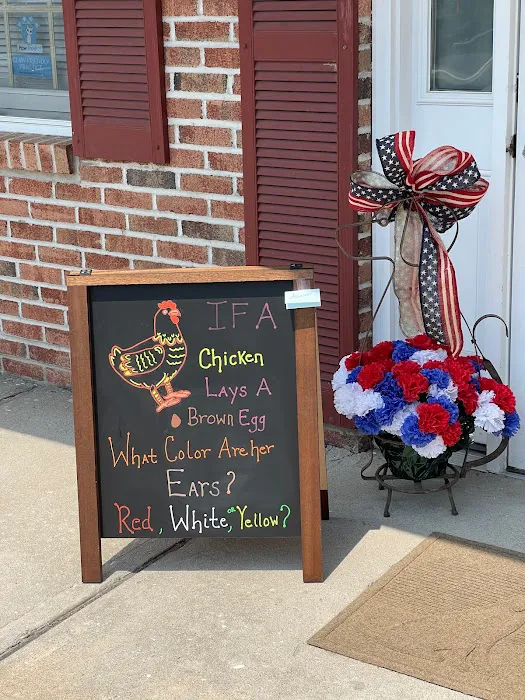 IF A
Chicken
Lays A
Brown Egg
What Color Are her
Ears?
Red, White, or Yellow?